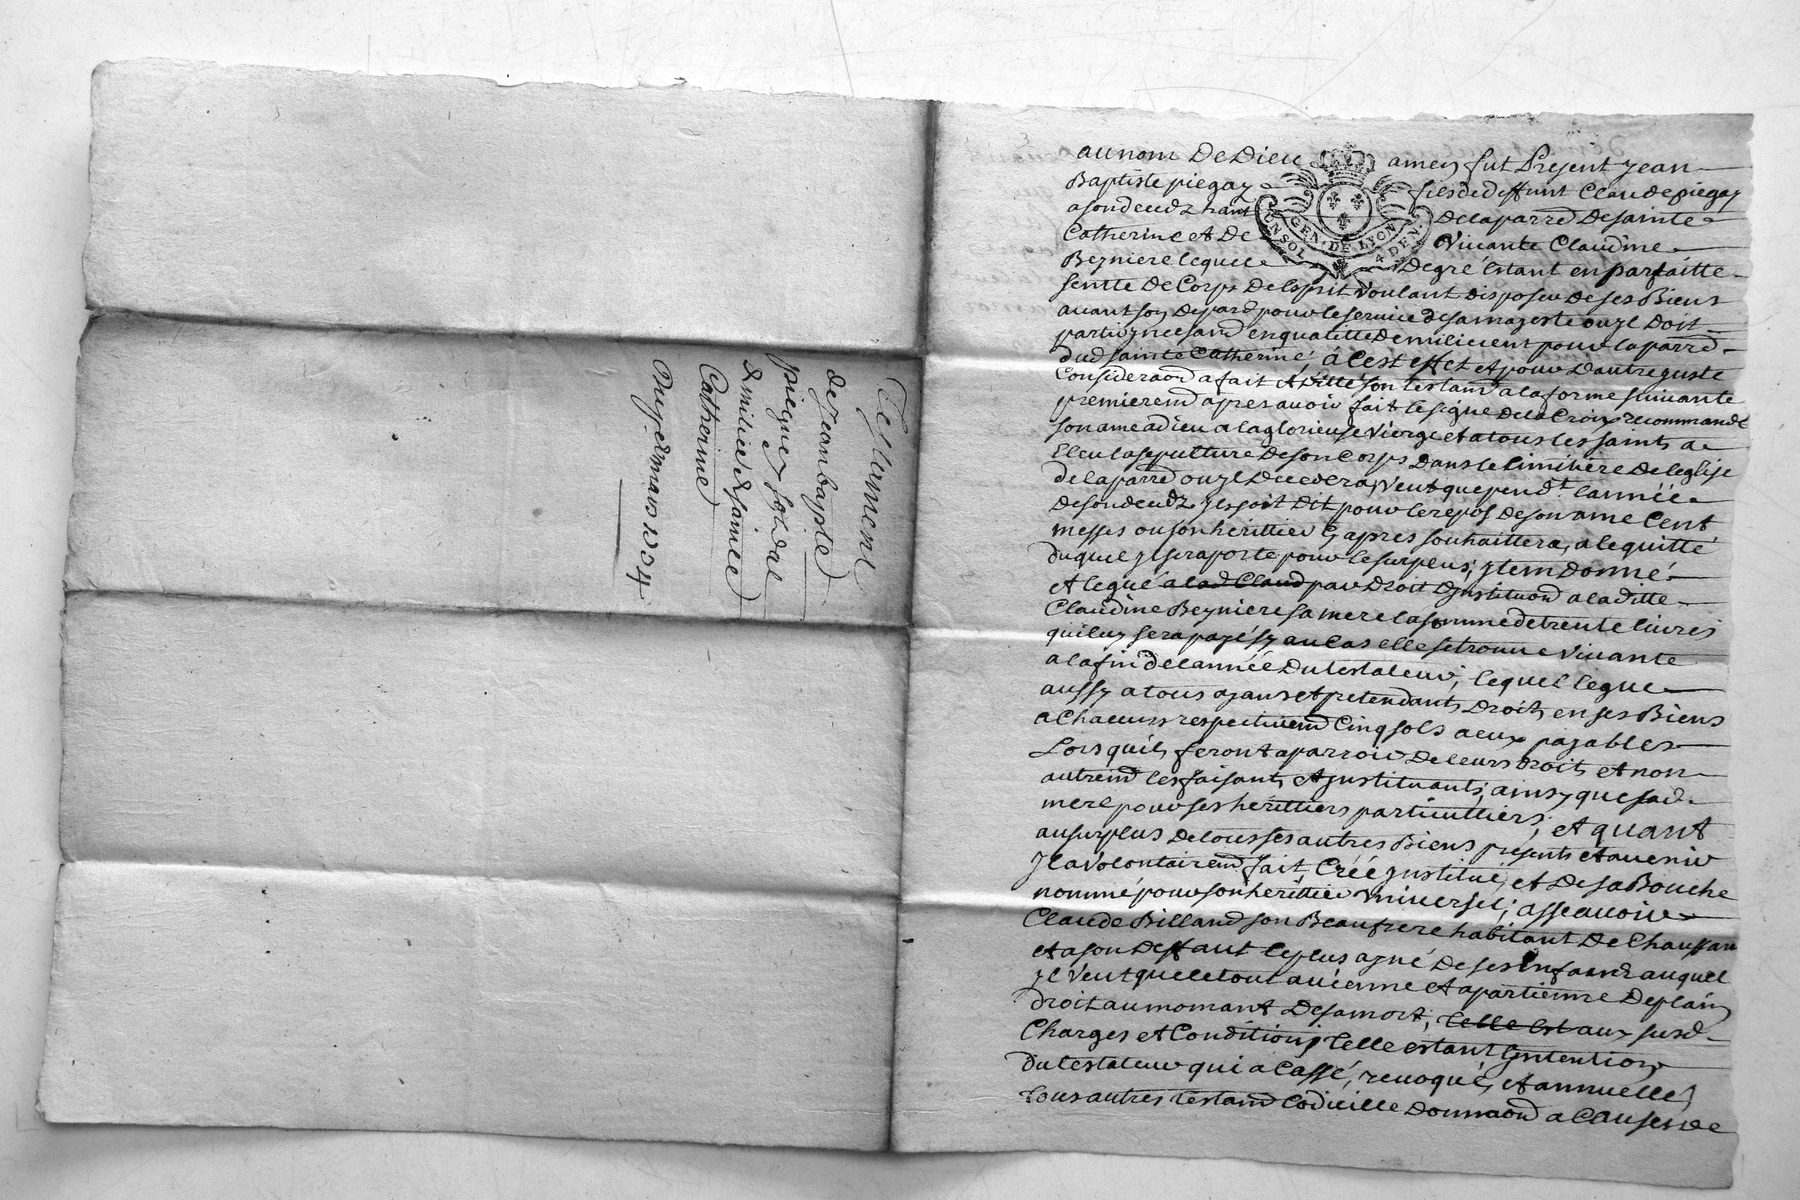 Testament
de Jean bapte
pieguey soldat
& milicier de sainte
Catherine
Du 28 mars 1704
au nom De Dieu amen fut Present Jean
Baptiste piegay fils de deffunt Claude piegay
a son deceds hant De la parre De sainte
Catherine et De Viuante Claudine
Beyniere lequel De gré Estant en parfaitte
sentte De Corps De Lesprit Voulant disposer De ses Biens
auant son Depard pour le seruice de sa majesté ou yl Doit
en qualitté De milicient pour la parre
dud sainte Catherine, a C'est effet et pour Dautre juste
Consideraon a fait & ditté son testamt a la forme suiuante
premierement apres auoir fait le signe De la Croix recommandé
son ame a dieu a la glorieuse Vierge et a tous les saints a
Eleu la sepulture De son Corps Dans le Cimitiere De leglise
de la parre ou yl Decedera, Veut que pendt lannée
De son deceds yl soit Dit pour le repos De son ame Cent
messes ou son herittier Cy apres souhaittera, a lequitté
duquel yl se raporte pour le surplus; ytem Donné
et legué a lad Claud par Droit Dynstituon a laditte
Claudine Beyniere sa mere la somme de trente liures
qui luy sera payé sy au Cas elle se trouue Viuante
a la fin de lannée Du testateur; lequel legue
aussy a tous ayans et pretendants Droits en ses Biens
a Chacuns respectiuemt Cinq sols a eux payables
Lors quils feront aparroir De leurs droits et non
autremt les faisants et ynstituants, ainsy que sad
mere pour ses herittiers particulliers; et quant
au surplus De tous ses autres Biens presents et auenir
Jl a Volontairemt fait, Créé ynstitué, et De sa Bouche
nommé pour son herittier Vniuersel; asseauoir
Claude Billand son Beaufrere habitant De Chaussan
et a son Deffaut le plus ayné De ses Enfants auquel
yl Veut que le tout auienne et apartienne De plain
droit au momant De sa mort, telle est aux susd
Charges et Conditions telle estant Lyntention
du testateur qui a Cassé, reuoqué, et annuellé
tous autres testamt Codicille Donnaon a Causes de